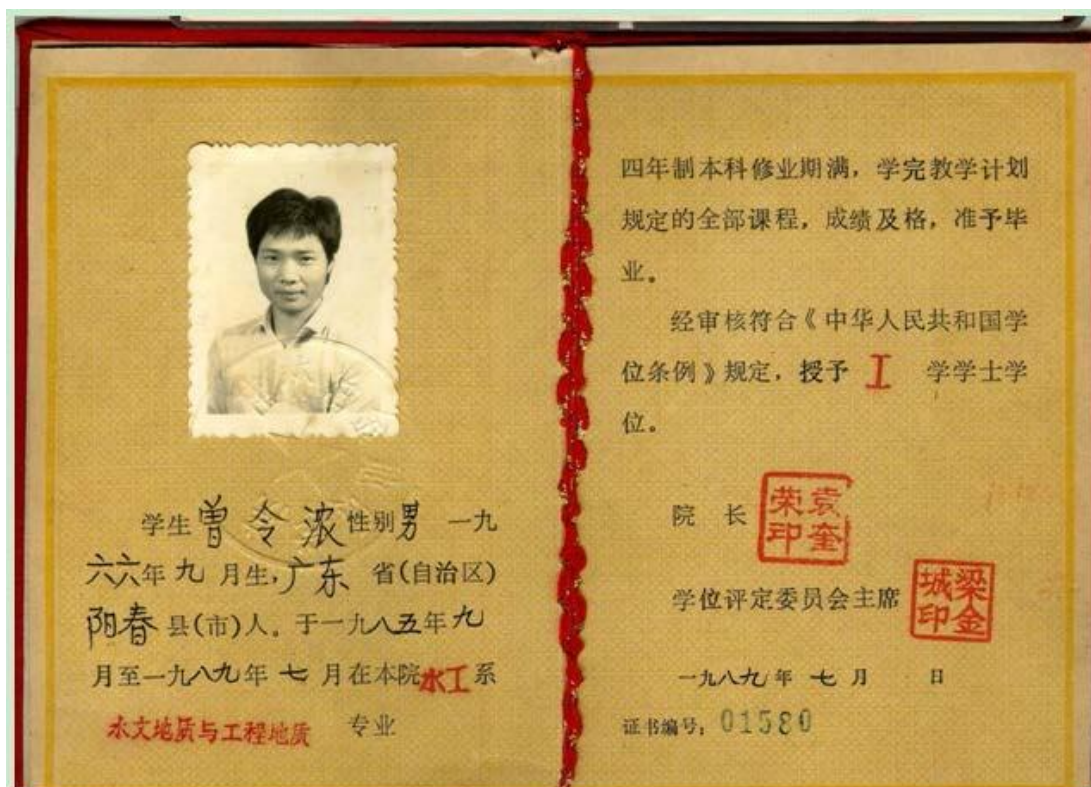 学生曾令浓性别男 一九
六六年九月生,广东省(自治区)
阳春县(市)人。于一九八五年九
月至一九八九年七月在本院水工系
水文地质与工程地质 专业
四年制本科修业期满,学完教学计划
规定的全部课程,成绩及格,准予毕
业。
经审核符合《中华人民共和国学
位条例》规定,授予 工 学学士学
位。
院 长 袁奎荣印
学位评定委员会主席 梁金城印
一九八九年七月 日
证书编号:01580